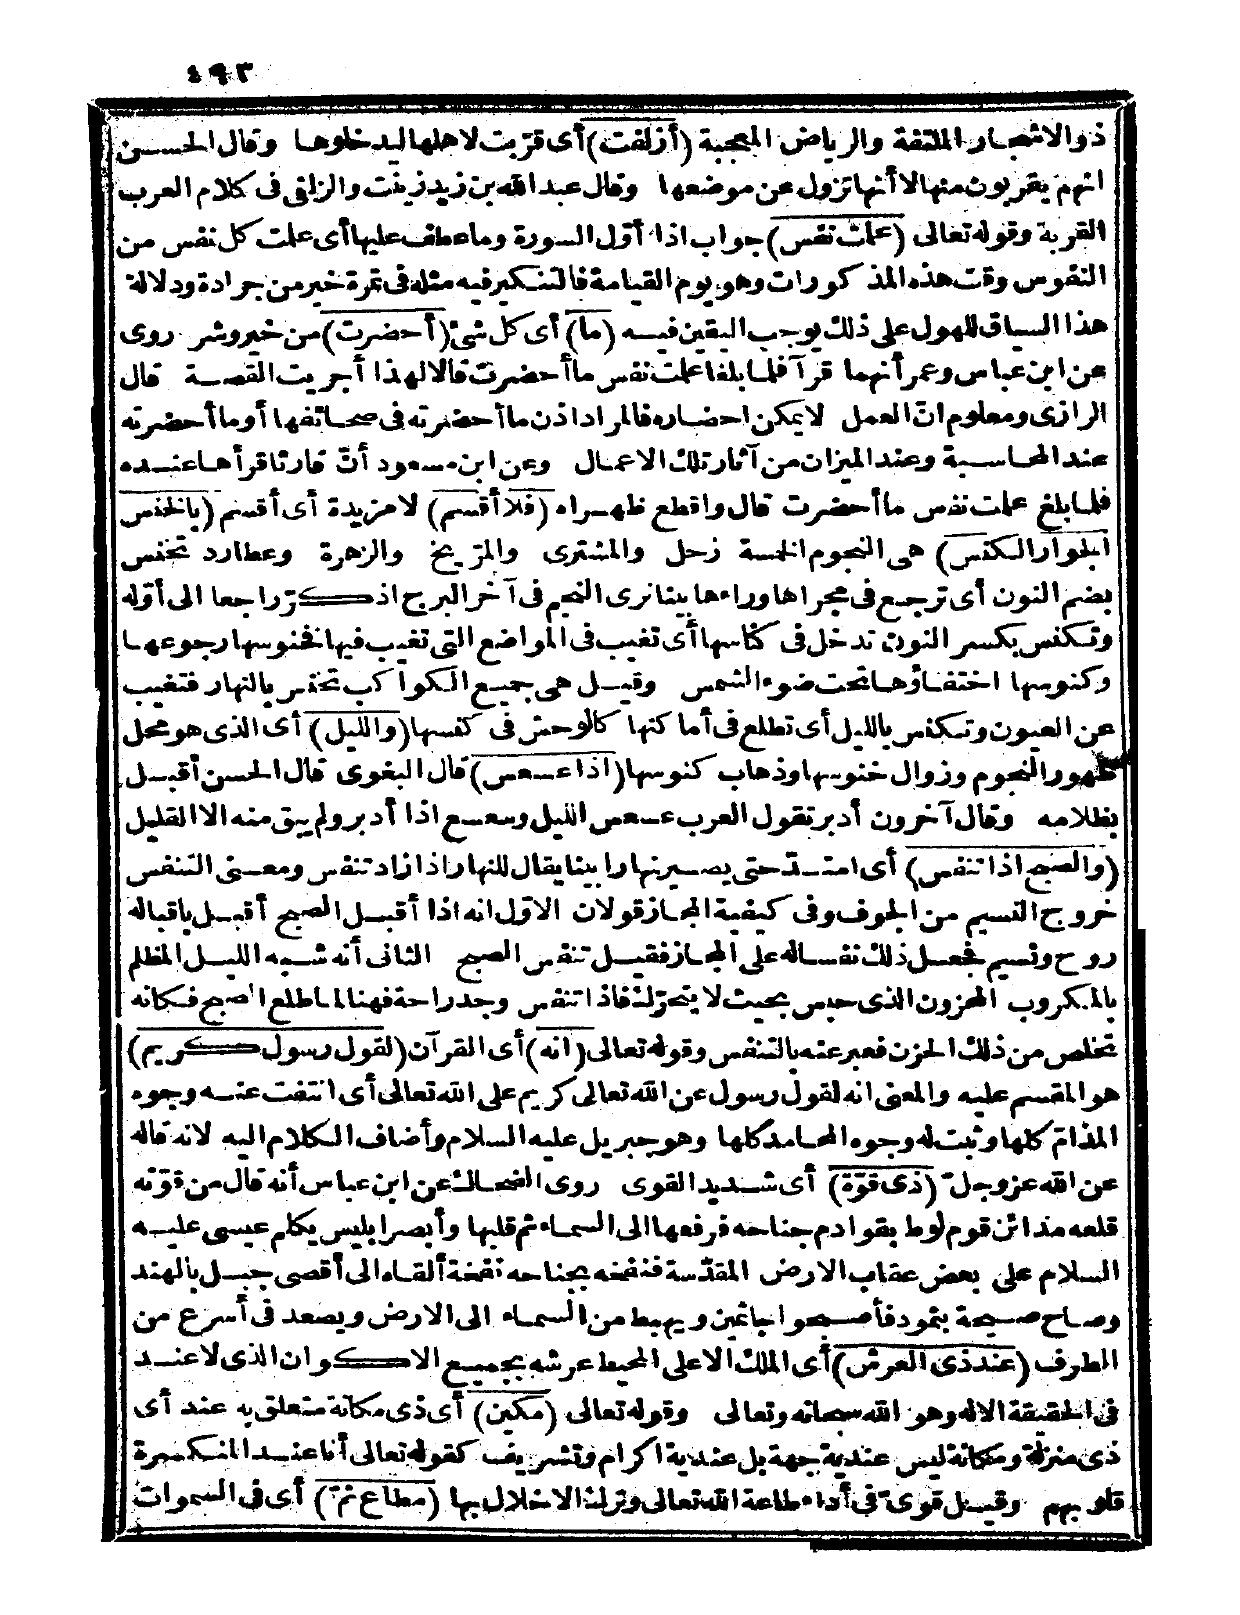 ٤٩٣
ذو الاشجار الملتفة والرياض المعجبة (أزلفت) أى قرّبت لاهلها ليدخلوها وقال الحسن
انهم يقربون منها لا أنها تزول عن موضعها وقال عبد الله بن زيد زينت والزلفى فى كلام العرب
القربة وقوله تعالى (علمت نفس) جواب اذا أوّل السورة وما عطف عليها أى علمت كل نفس من
النفوس وقت هذه المذكورات وهو يوم القيامة فالتنكير فيه مثله فى تمرة خير من جرادة ودلالة
هذا السياق للهول على ذلك يوجب اليقين فيه (ما) أى كل شئ (أحضرت) من خير وشر روى
عن ابن عباس وعمر أنهما قرآ فلما بلغا علمت نفس ما أحضرت قالا لهذا أجريت القصة قال
الرازى ومعلوم انّ العمل لا يمكن احضاره فالمراد اذن ما أحضرته فى صحائفها أو ما أحضرته
عند المحاسبة وعند الميزان من آثار تلك الاعمال وعن ابن مسعود أنّ قارئا قرأها عنده
فلما بلغ علمت نفس ما أحضرت قال واقطع ظهراه (فلا أقسم) لا مزيدة أى أقسم (بالخنس
الجوار الكنس) هى النجوم الخمسة زحل والمشترى والمرّيخ والزهرة وعطارد تخنس
بضم النون أى ترجع فى مجراها وراءها بينا نرى النجم فى آخر البرج اذ كرّ راجعا الى أوّله
وتكنس بكسر النون تدخل فى كناسها أى تغيب فى المواضع التى تغيب فيها فخنوسها رجوعها
وكنوسها اختفاؤها تحت ضوء الشمس وقيل هى جميع الكواكب تخنس بالنهار فتغيب
عن العيون وتكنس بالليل أى تطلع فى أماكنها كالوحش فى كنسها (والليل) أى الذى هو محل
ظهور النجوم وزوال خنوسها وذهاب كنوسها (اذا عسعس) قال البغوى قال الحسن أقبل
بظلامه وقال آخرون أدبر تقول العرب عسعس الليل وسعسع اذا أدبر ولم يبق منه الا القليل
(والصبح اذا تنفس) أى امتدّ حتى يصير نهارا بينا يقال للنهار اذا زاد تنفس ومعنى التنفس
خروج النسيم من الجوف وفى كيفية المجاز قولان الاوّل انه اذا أقبل الصبح أقبل باقباله
روح ونسيم فجعل ذلك نفسا له على المجاز فقيل تنفس الصبح الثانى أنه شبه الليل المظلم
بالمكروب المحزون الذى حبس بحيث لا يتحرّك فاذا تنفس وجد راحة فهنا لما طلع الصبح فكانه
تخلص من ذلك الحزن فعبر عنه بالتنفس وقوله تعالى (انه) أى القرآن (لقول رسول كريم)
هو المقسم عليه والمعنى انه لقول رسول عن الله تعالى كريم على الله تعالى أى انتفت عنه وجوه
المذامّ كلها وثبت له وجوه المحامد كلها وهو جبريل عليه السلام وأضاف الكلام اليه لانه قاله
عن الله عز وجلّ (ذى قوّة) أى شديد القوى روى الضحاك عن ابن عباس أنه قال من قوّته
قلعه مدائن قوم لوط بقوادم جناحه فرفعها الى السماء ثم قلبها وأبصر ابليس يكلم عيسى عليه
السلام على بعض عقاب الارض المقدّسة فنفخه بجناحه نفخة ألقاه الى أقصى جبل بالهند
وصاح صيحة بثمود فأصبحوا جاثمين ويهبط من السماء الى الارض ويصعد فى أسرع من
الطرف (عند ذى العرش) أى الملك الاعلى المحيط عرشه بجميع الاكوان الذى لا عند
فى الحقيقة الا له وهو الله سبحانه وتعالى وقوله تعالى (مكين) أى ذى مكانة متعلق به عند أى
ذى منزلة ومكانة ليس عندية جهة بل عندية اكرام وتشريف كقوله تعالى أنا عند المنكسرة
قلوبهم وقيل قوىّ فى أداء طاعة الله تعالى وترك الاخلال بها (مطاع ثمّ) أى فى السموات